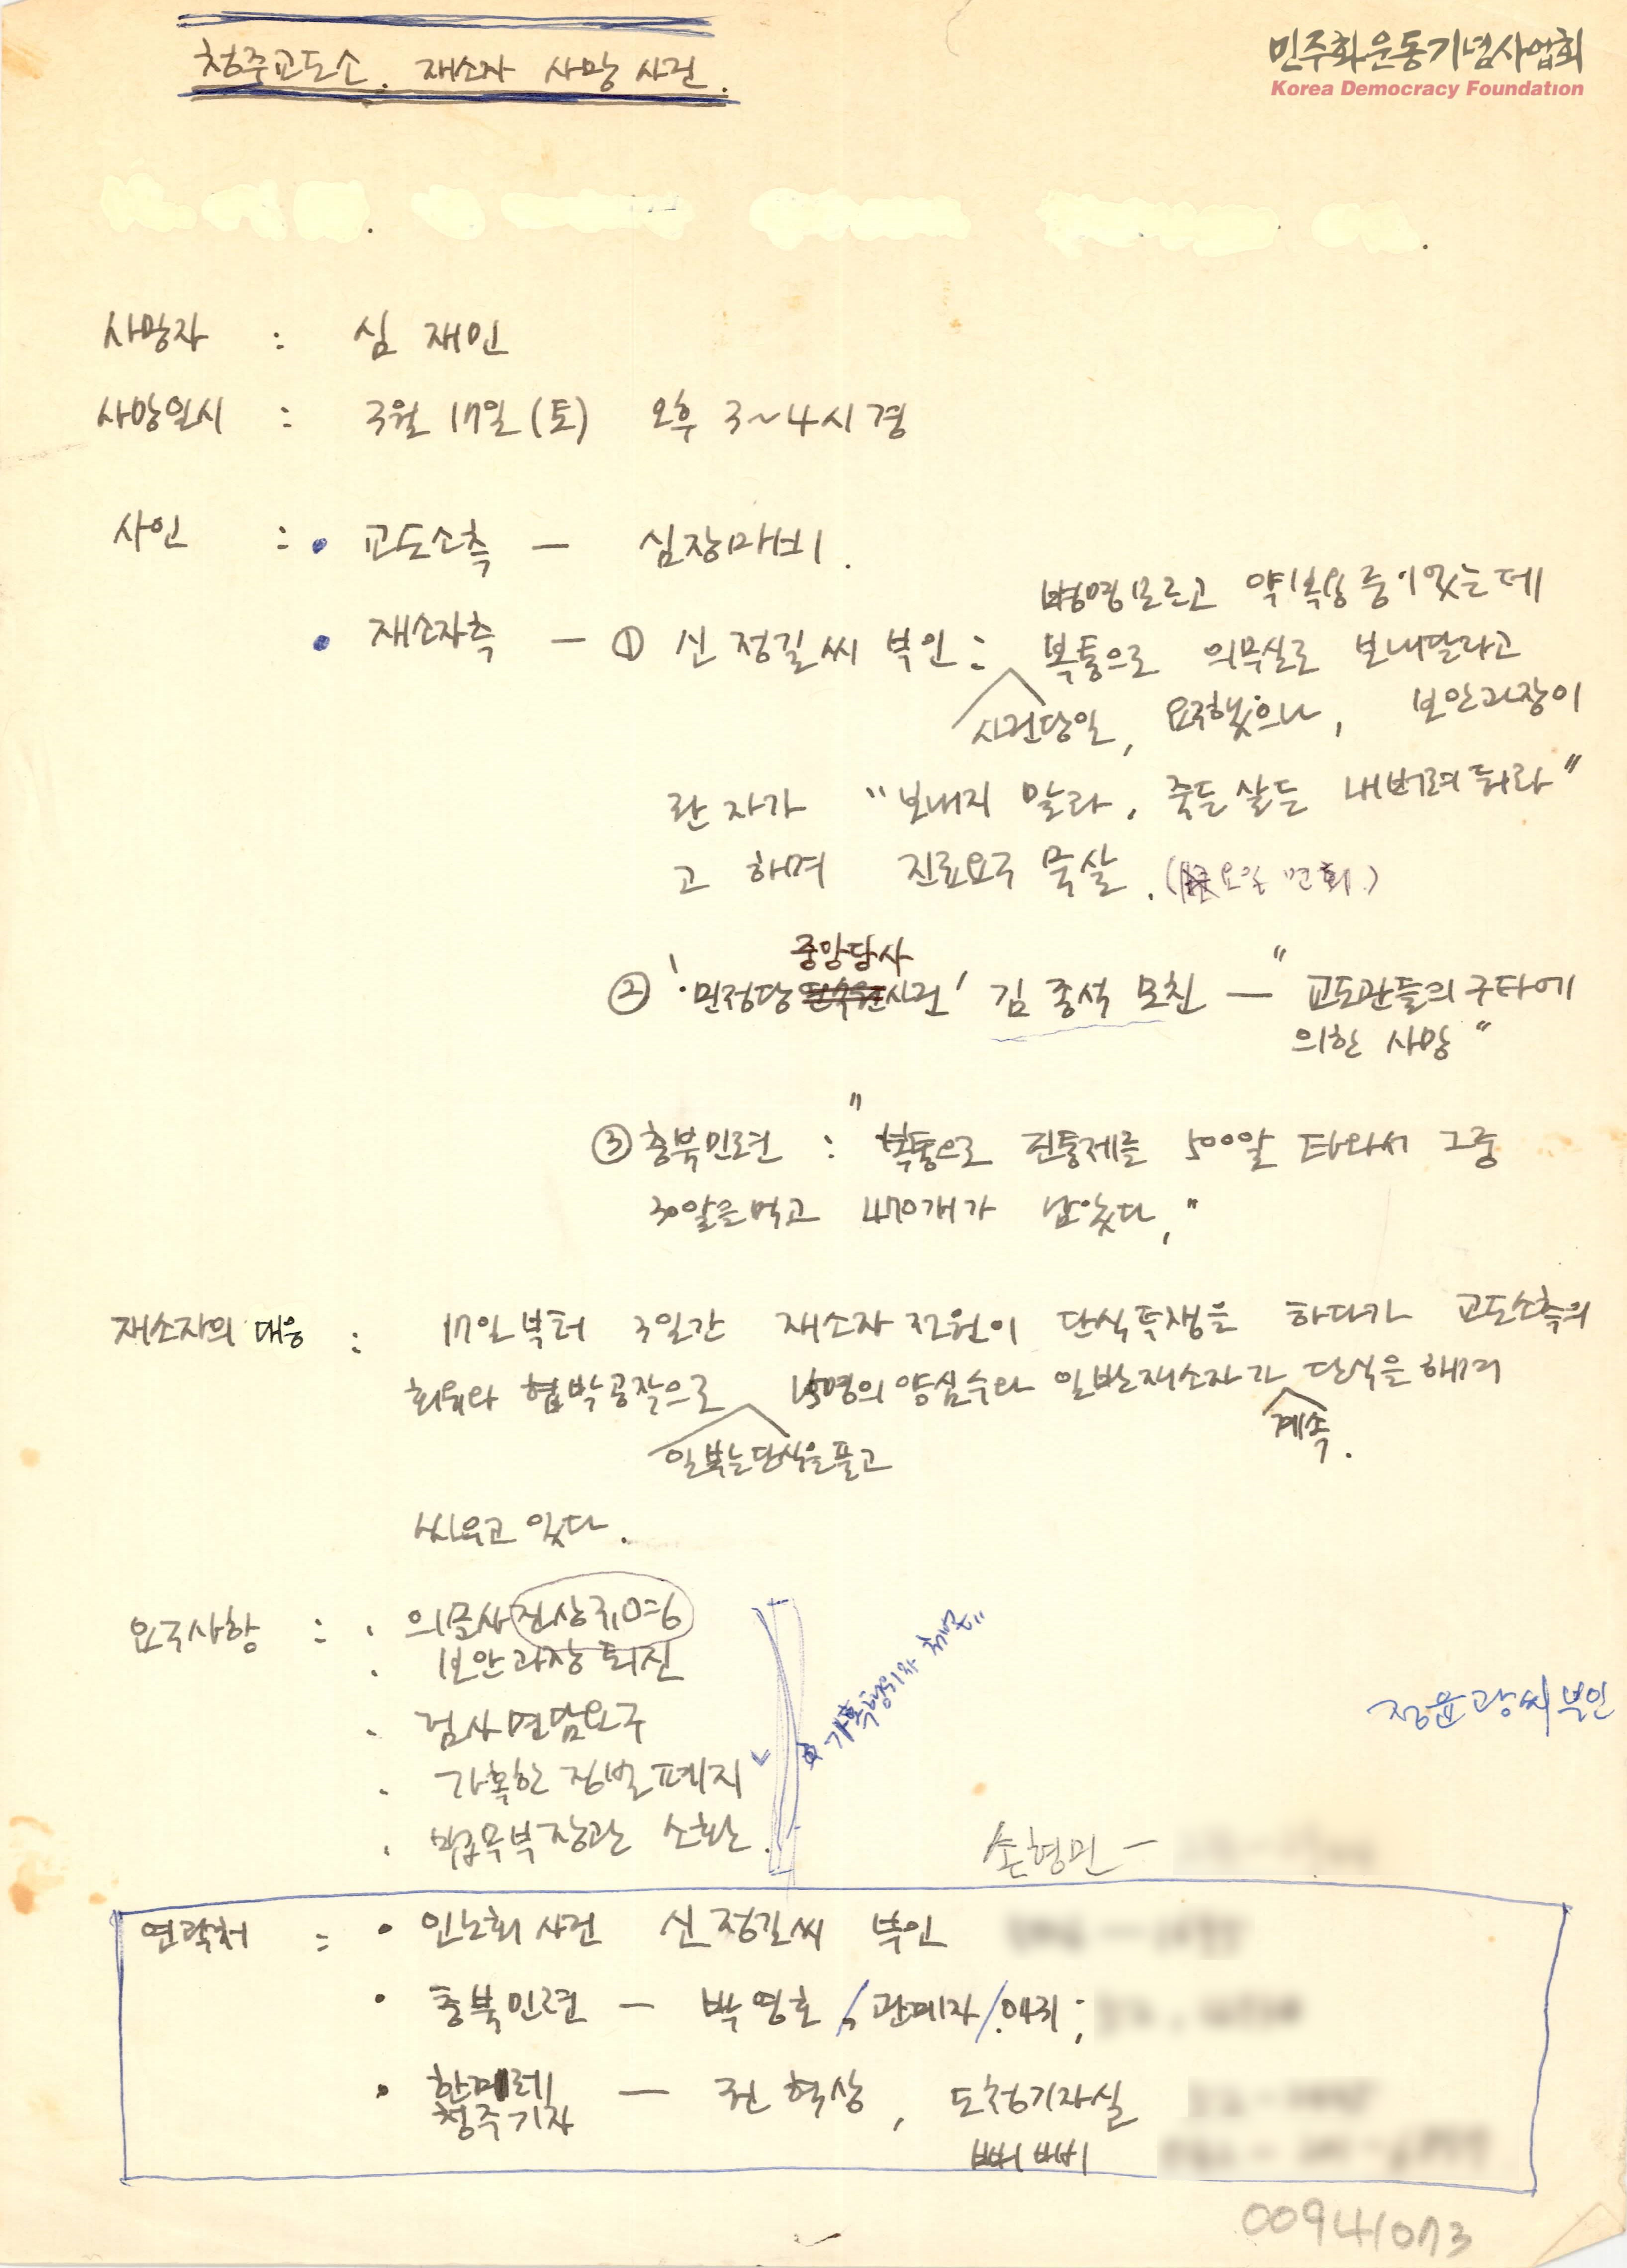 청주교도소. 재소자 사망 사건.
민주화운동기념사업회
Korea Democracy Foundation
사망자 : 심 재인
사망일시 : 3월 17일 (토) 오후 3~4시경
사인 : • 교도소측 — 심장마비.
병명모르고 약복용중이었는데
• 재소자측 — ① 신정길씨 부인 : 복통으로 의무실로 보내달라고
사건당일, 요청했으나, 보안과장이
란 자가 "보내지 말라, 죽든 살든 내버려 둬라"
고 하며 진료요구 묵살. (요일 면회)
중앙당사
② '민정당 사건' 김종석 모친 — "교도관들의 구타에
의한 사망"
③ 충북민련 : "복통으로 진통제를 500알 타와서 그중
30알을 먹고 470개가 남았다."
재소자의 대응 : 17일부터 3일간 재소자 전원이 단식투쟁을 하다가 교도소측의
회유와 협박공작으로 15명의 양심수와 일반재소자가 단식을 하며
일부는 단식을 풀고
계속.
싸우고 있다.
요구사항 : · 의문사 진상규명
· 보안과장 퇴진
· 검사면담요구
· 가혹한 징벌 폐지
· 법무부장관 소환.
가혹행위와
정윤광씨 부인
손형민 —
연락처 : • 인노회 사건 신정길씨 부인
• 충북민련 — 박영호, 관계자
• 한겨레 — 권혁상, 도청기자실
청주기자
삐삐
00941073